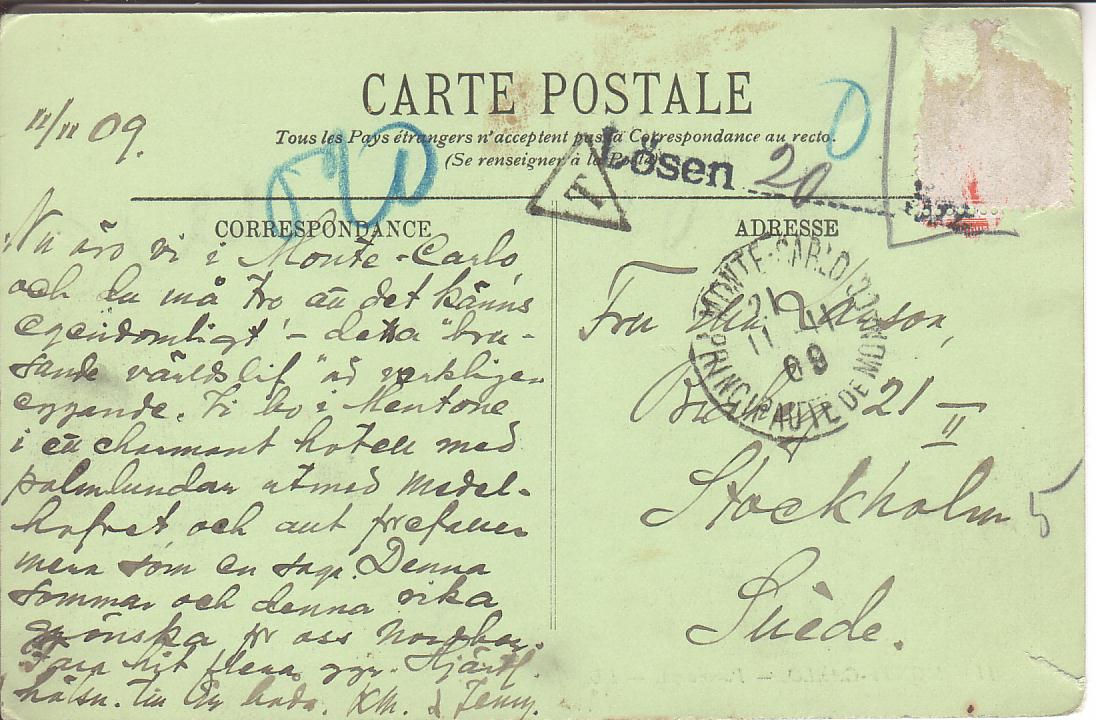 CARTE POSTALE
Tous les Pays étrangers n'acceptent pas la Correspondance au recto.
(Se renseigner à la Poste)
11/11 09.
Lösen 20
T
CORRESPONDANCE
ADRESSE
Nu äro vi i Monte-Carlo
och du må tro att det känns
egendomligt - detta "bru-
sande världslif" är verkligen
eggande. Vi bo i Mentone
i ett charmant hotell med
palmlundar utmed Medel-
hafvet och allt förefaller
mera som en saga. Denna
sommar och denna rika
grönska för oss nordbor.
Fara hit flera ggr. Hjärtl.
häls. till Er båda. KM. & Jenny.
MONTE-CARLO
PRINCIPAUTÉ DE MONACO
21 11 09
Fru Larsson,
21 II
Stockholm
5
Suède.